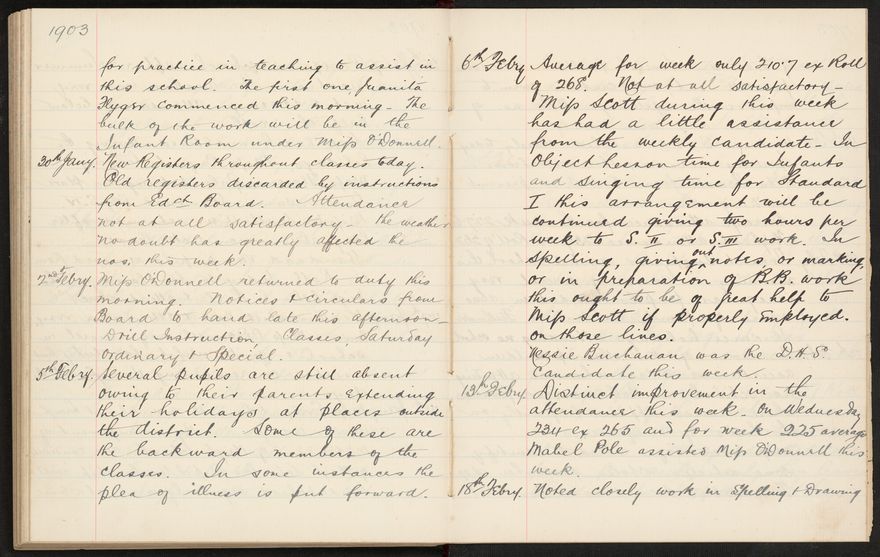 1903
for practice in teaching to assist in
this school. The first one, Juanita
Flyger commenced this morning - The
bulk of the work will be in the
Infant Room under Miss O'Donnell.
30th Jany. New Registers throughout classes today.
Old registers discarded by instructions
from Edct Board. Attendance
not at all satisfactory - the weather
no doubt has greatly affected the
nos. this week.
2nd Febry. Miss O'Donnell returned to duty this
morning. Notices & circulars from
Board to hand late this afternoon -
Drill Instruction, Classes, Saturday
ordinary & Special.
5th Febry. Several pupils are still absent
owing to their parents extending
their holidays at places outside
the district. Some of these are
the backward members of the
classes. In some instances the
plea of illness is put forward.
6th Febry Average for week only 210.7 ex Roll
of 268. Not at all satisfactory -
Miss Scott during this week
has had a little assistance
from the weekly candidate - In
Object Lesson time for Infants
and singing time for Standard
I this arrangement will be
continued giving two hours per
week to S. II or S. III work. In
Spelling, giving out notes, or marking,
or in preparation of B.B. work
this ought to be of great help to
Miss Scott if properly employed.
on those lines.
Nessie Buchanan was the D.H.S.
Candidate this week.
13th Febry Distinct improvement in the
attendance this week. On Wednesday
234 ex 265 and for week 225 average
Mabel Pole assisted Miss O'Donnell this
week.
18th Febry. Noted closely work in Spelling & Drawing